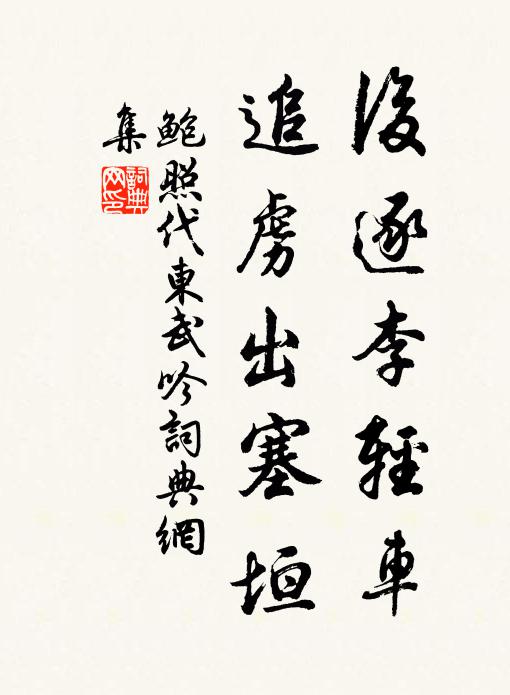 後逐李輕車
追虜出塞垣
鮑照代東武吟詞典網
集
詞典
网印